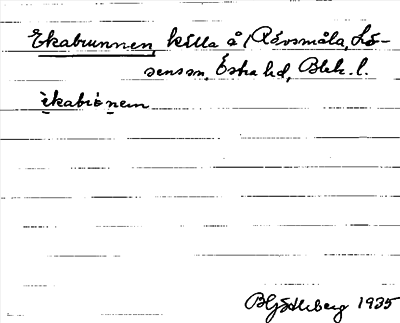 Ekabrunnen, källa å Rävsmåla, Lö-
sens sn, Östra hd, Blek. l.
èkabrònem
1935